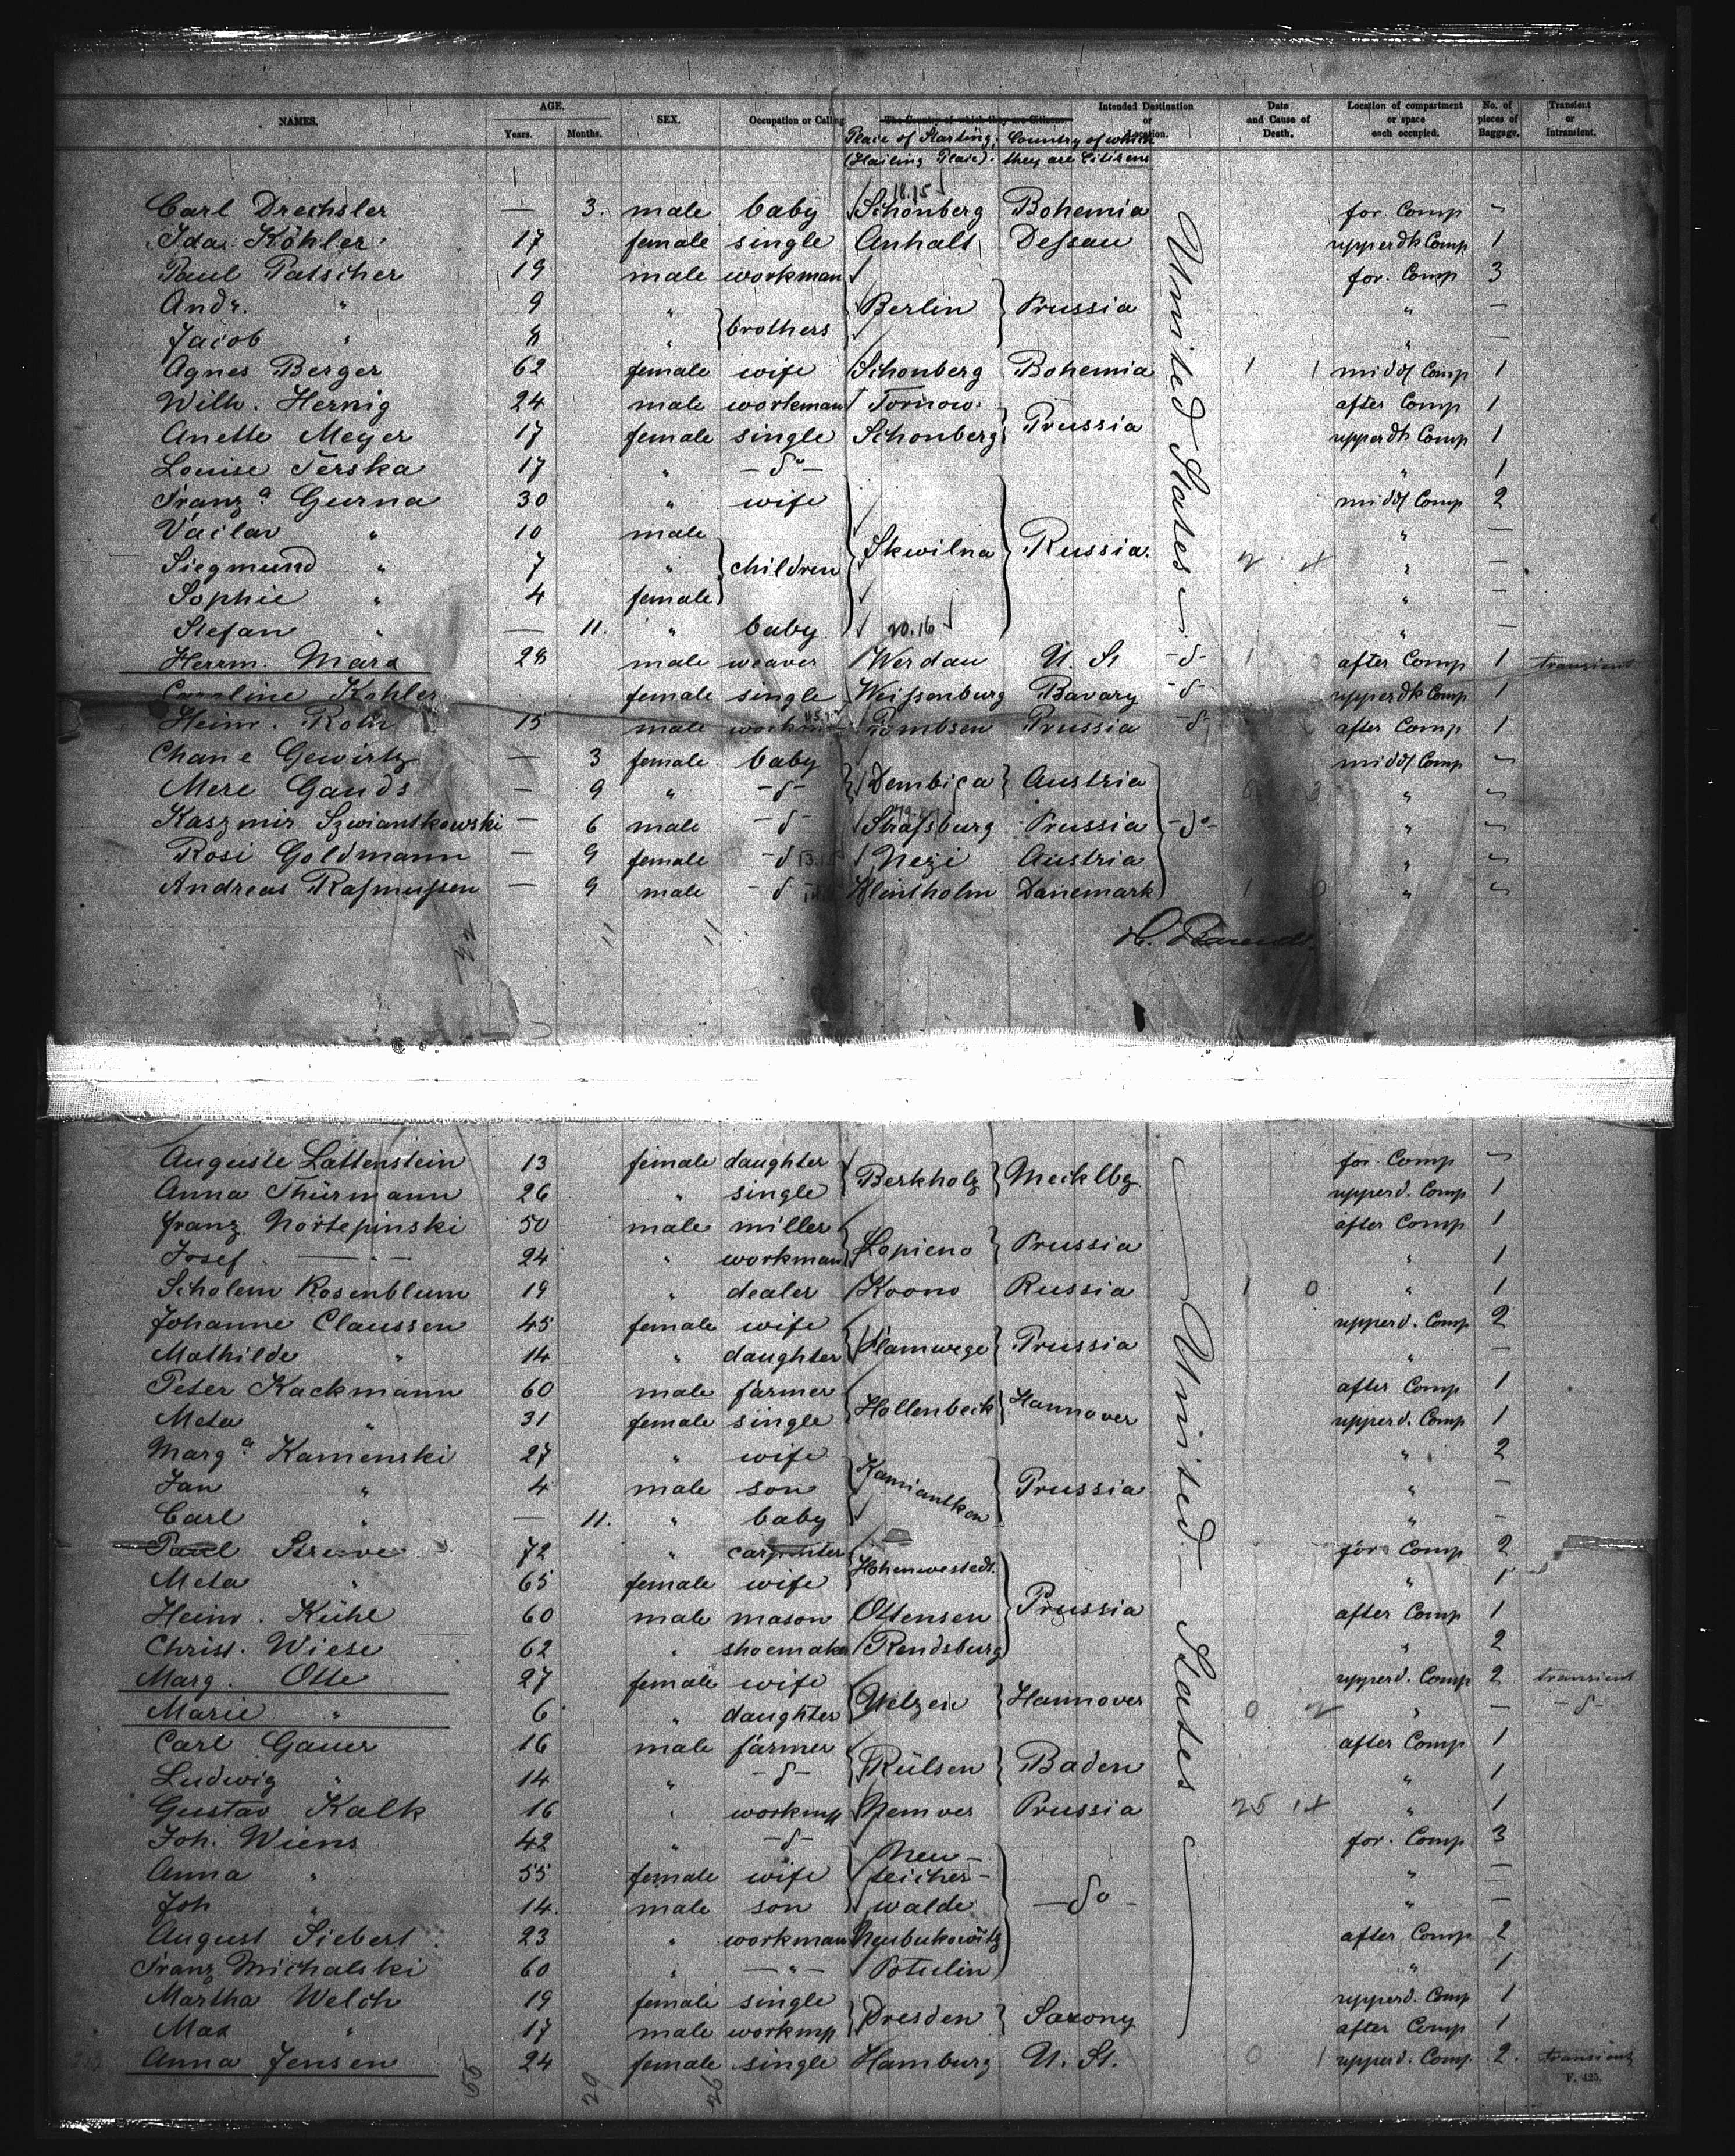 NAMES. AGE. Years. Months. SEX. Occupation or Calling The Country of which they are Citizens. Intended Destination or Location. Date and Cause of Death. Location of compartment or space each occupied. No. of pieces of Baggage. Transient or Intransient.
Place of Starting. (Hailing Place). Country of which they are Citizens
18.15
Carl Drechsler — 3. male baby Schönberg Bohemia for. Comp
Ida Köhler 17 female single Anhalt Dessau upperdk Comp 1
Paul Patscher 19 male workman for. Comp 3
Andr. " 9 " Berlin Prussia " —
Jacob " 8 " brothers " —
Agnes Berger 62 female wife Schonberg Bohemia 1 1 midd/ Comp 1
Wilh. Hernig 24 male workman Tornow after Comp 1
Anette Meyer 17 female single Schonberg Prussia upperdk Comp 1
Louise Terska 17 " — do — " 1
Franz a Gurna 30 " wife midd/ Comp 2
Vaclav " 10 male " —
Siegmund " 7 " children Skwilna Russia 2 4 " —
Sophie " 4 female " —
Stefan " — 11. " baby 20.16 " —
United States
Herrm. Marx 28 male weaver Werdau U. St - d - 1 0 after Comp 1 transient
Caroline Kohler female single Weissenburg Bavary - d - upperdk Comp 1
Heinr. Rohr 15 male workman Pombsen Prussia - d - after Comp 1
Chane Gewirtz — 3 female baby midd/ Comp
Mere Gands — 9 " - d - Dembiça Austria "
Kaszmir Szwiantkowski — 6 male - d - Strassburg Prussia - do - "
Rosi Goldmann — 9 female - d Nezi Austria "
Andreas Rasmussen — 9 male - d Klintholm Danemark 1 0 "
11 11
Auguste Lattenstein 13 female daughter for. Comp
Anna Thürmann 26 " single Berkholz Mecklbg upperd. Comp 1
Franz Nortepinski 50 male miller after Comp 1
Josef — " — 24 " workman Lopieno Prussia " 1
Scholem Rosenblum 19 " dealer Koono Russia 1 0 " 1
Johanne Claussen 45 female wife upperd. Comp 2
Mathilde " 14 " daughter Hamwege Prussia " —
Peter Kackmann 60 male farmer after Comp 1
Meta " 31 female single Hollenbeck Hannover upperd. Comp 1
Marg a Kamenski 27 " wife " 2
Jan " 4 male son Kamiantkon Prussia " —
Carl " — 11. " baby " -
Paul Struve 72 " carpenter for. Comp 2
Meta " 65 female wife Hohenwestedt. " 1
Heinr. Kühl 60 male mason Ottensen Prussia after Comp 1
Christ. Wiese 62 " shoemaker Rendsburg " 2
Marg. Otte 27 female wife upperd. Comp 2 transient
Marie " 6 " daughter Uelzen Hannover 0 2 " — - d -
Carl Gauer 16 male farmer after Comp 1
Ludwig " 14 " - d - Rülsen Baden " 1
Gustav Kalk 16 " workmp Nemver Prussia 25 14 " 1
Joh. Wiens 42 " - d - for. Comp 3
Anna " 55 female wife Neu- teicher- " —
Joh " 14. male son walde — do - " —
August Siebert 23 " workman Neubukowitz after Comp 2
Franz Michalski 60 " — " — Potulin " 1
Martha Welch 19 female single upperd. Comp 1
Max " 17 male workmp Dresden Saxony after Comp 1
United States
Anna Jensen 24 female single Hamburg U. St. 0 1 upperd. Comp. 2. transient
29 29
F. 425.